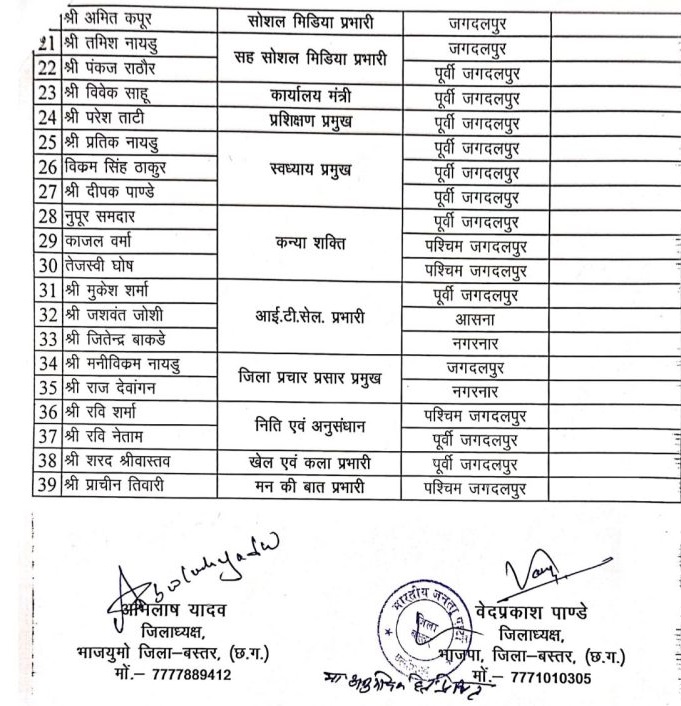 श्री अमित कपूर सोशल मिडिया प्रभारी जगदलपुर
21 श्री तमिश नायडु सह सोशल मिडिया प्रभारी जगदलपुर
22 श्री पंकज राठौर पूर्वी जगदलपुर
23 श्री विवेक साहू कार्यालय मंत्री पूर्वी जगदलपुर
24 श्री परेश ताटी प्रशिक्षण प्रमुख पूर्वी जगदलपुर
25 श्री प्रतिक नायडु स्वध्याय प्रमुख पूर्वी जगदलपुर
26 विकम सिंह ठाकुर पूर्वी जगदलपुर
27 श्री दीपक पाण्डे पूर्वी जगदलपुर
28 नुपूर समदार कन्या शक्ति पूर्वी जगदलपुर
29 काजल वर्मा पश्चिम जगदलपुर
30 तेजस्वी घोष पश्चिम जगदलपुर
31 श्री मुकेश शर्मा आई.टी.सेल. प्रभारी पूर्वी जगदलपुर
32 श्री जशवंत जोशी आसना
33 श्री जितेन्द्र बाकडे नगरनार
34 श्री मनीविकम नायडु जिला प्रचार प्रसार प्रमुख जगदलपुर
35 श्री राज देवांगन नगरनार
36 श्री रवि शर्मा निति एवं अनुसंधान पश्चिम जगदलपुर
37 श्री रवि नेताम पूर्वी जगदलपुर
38 श्री शरद श्रीवास्तव खेल एवं कला प्रभारी पूर्वी जगदलपुर
39 श्री प्राचीन तिवारी मन की बात प्रभारी पश्चिम जगदलपुर
अभिलाष यादव
जिलाध्यक्ष,
भाजयुमो जिला–बस्तर, (छ.ग.)
मों.– 7777889412
भारतीय जनता पार्टी
जिला
वेदप्रकाश पाण्डे
जिलाध्यक्ष,
भाजपा, जिला–बस्तर, (छ.ग.)
मों.– 7771010305